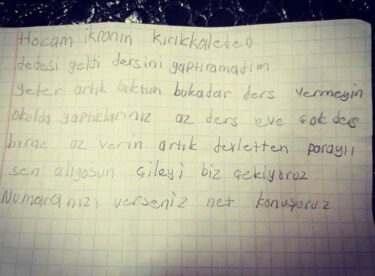 Hocam ikranın kırıkkaleden
dedesi geldi dersini yaptıramadım
yeter artık bıktım bukadar ders vermeyin
okulda yaptıklarınız az ders eve çok ders
biraz az verin artık devletten parayıı
sen alıyosun çileyi biz çekiyoruz
Numaranızı verseniz net konuşuruz